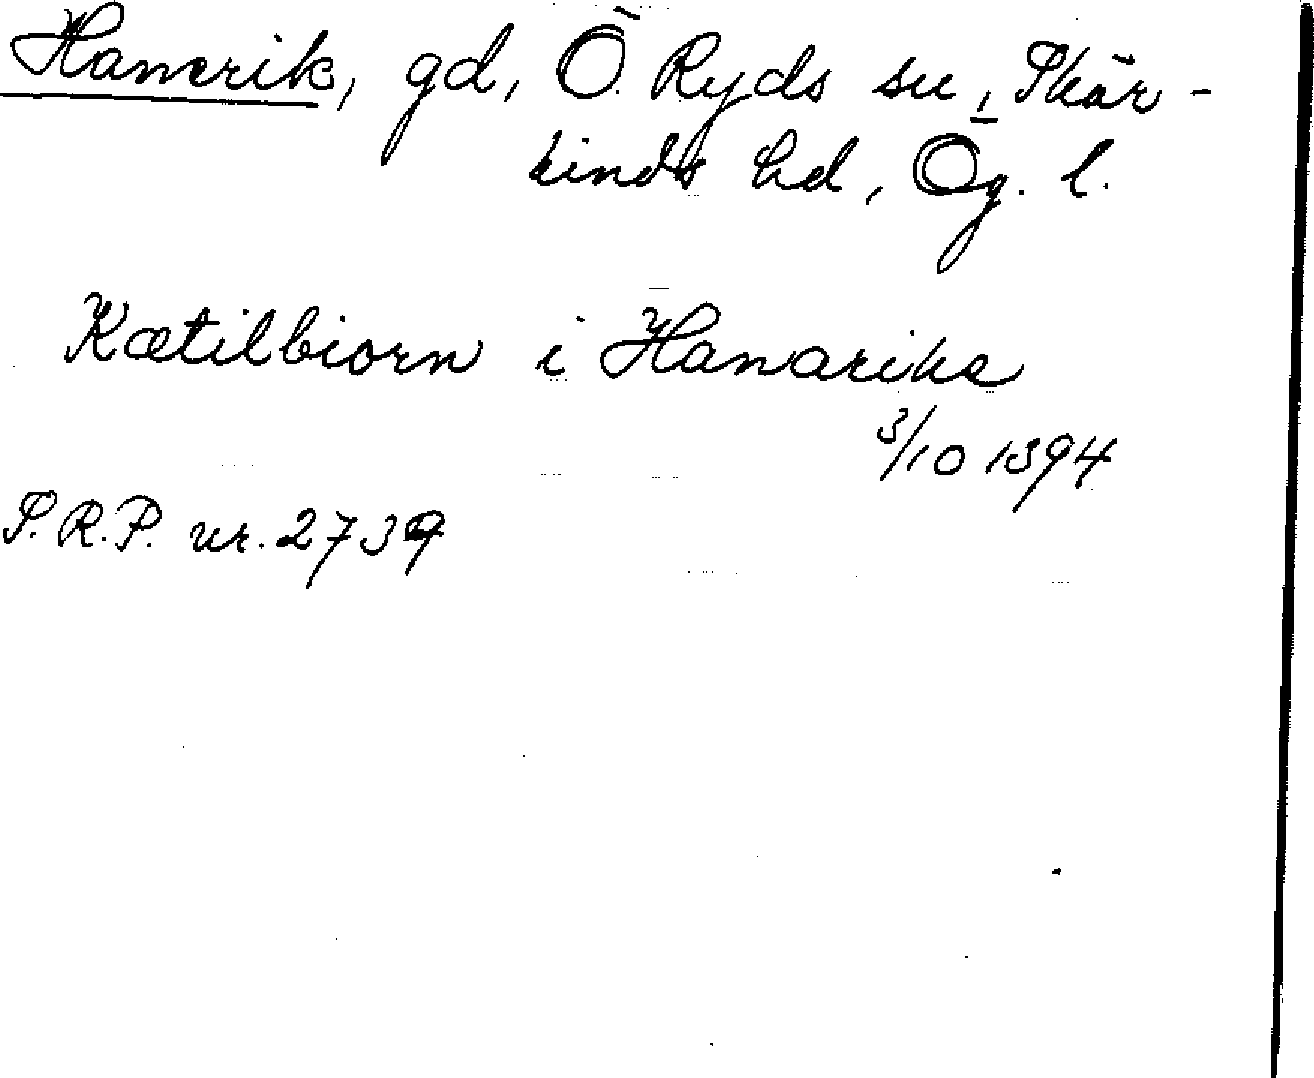 Hanerik, gd, Ö. Ryds sn, Skär-
kinds hd, Ög. l.
Kætilbiorn i Hanarike
3/10 1394
S.R.P. nr. 2739